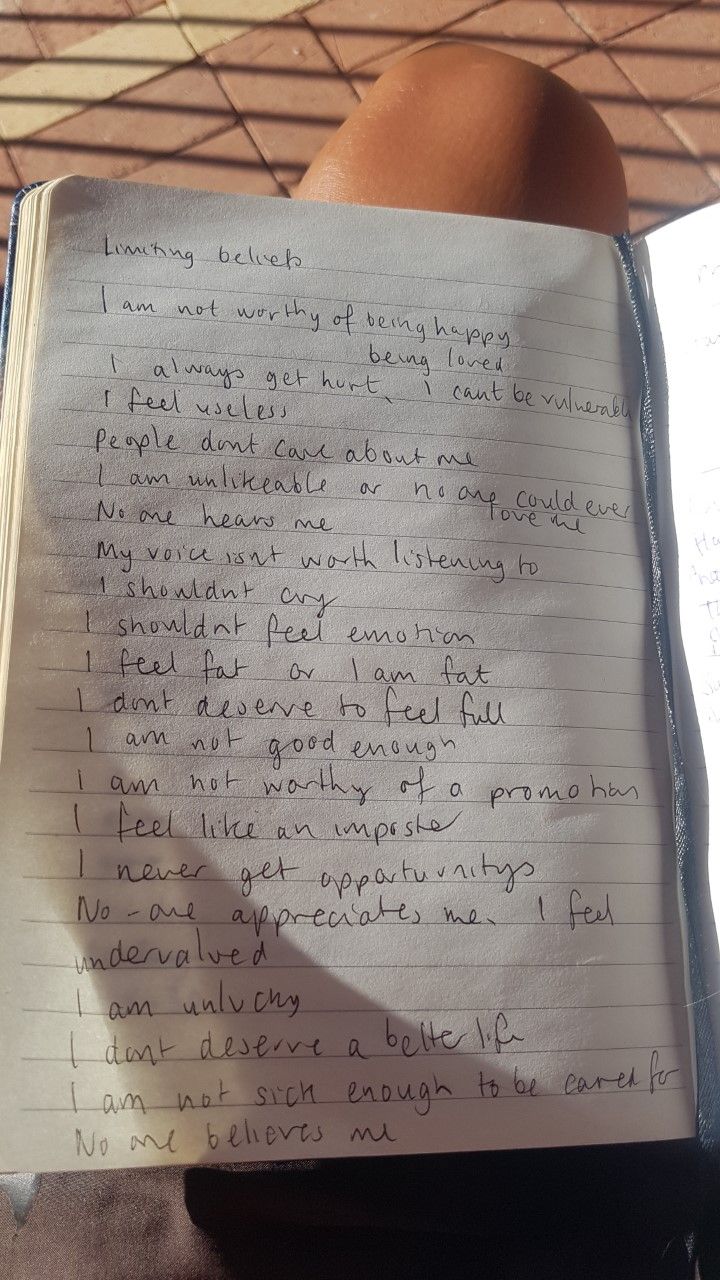 Limiting beliefs
I am not worthy of being happy
being loved
I always get hurt, I cant be vulnerable
I feel useless
people dont care about me
I am unlikeable or no one could ever
love me
No one hears me
My voice isnt worth listening to
I shouldnt cry
I shouldnt feel emotion
I feel fat or I am fat
I dont deserve to feel full
I am not good enough
I am not worthy of a promotion
I feel like an imposter
I never get opportunitys
No-one appreciates me. I feel
undervalued
I am unlucky
I dont deserve a better life
I am not sick enough to be cared for
No one believes me